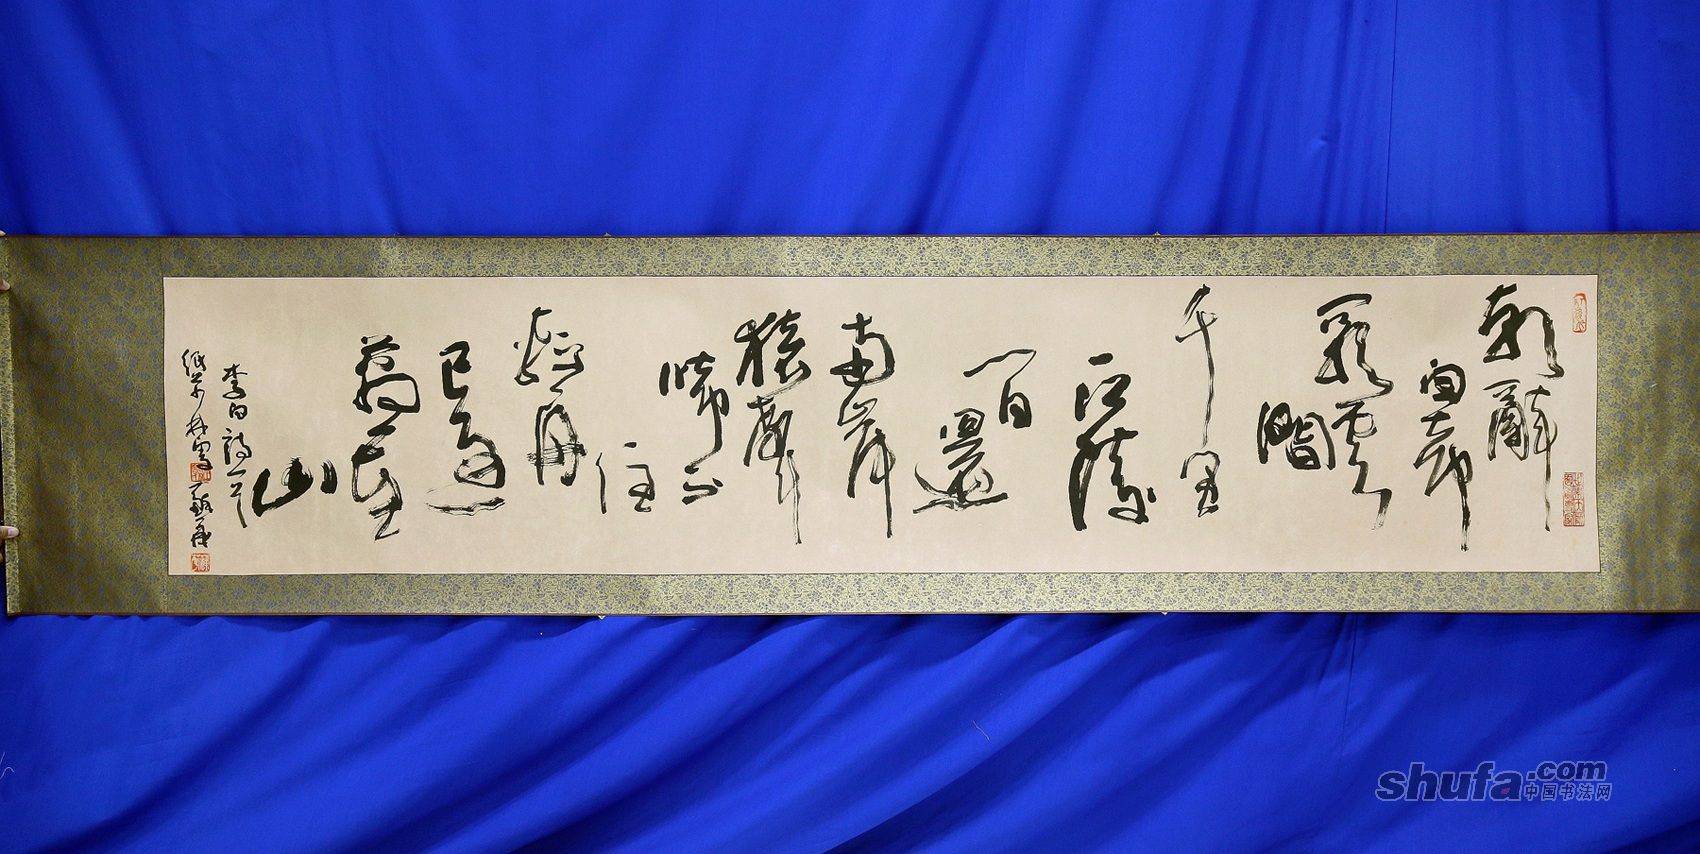 朝辭
白帝
彩雲
間
千里
江陵
一日
還
兩岸
猿聲
啼不
住
輕舟
已過
萬重
山
李白詩一首
shufa.com
中国书法网